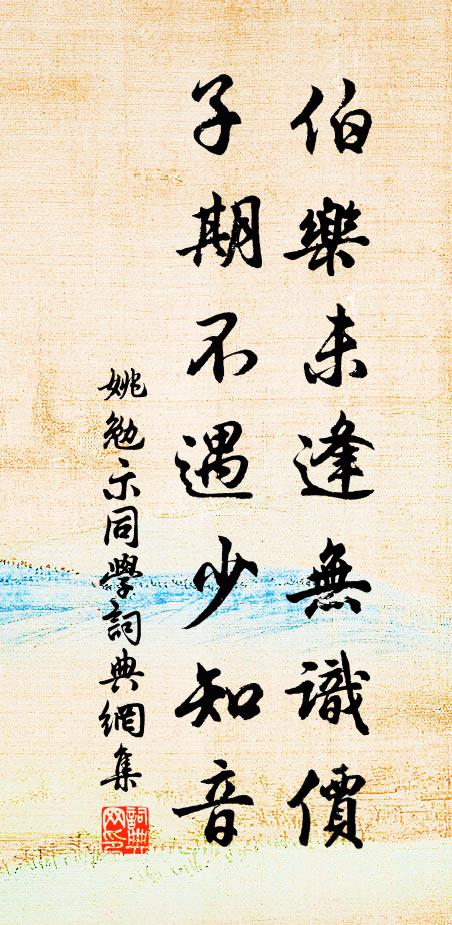 伯樂未逢無識價
子期不遇少知音
姚勉示同學詞典網集
詞典网印